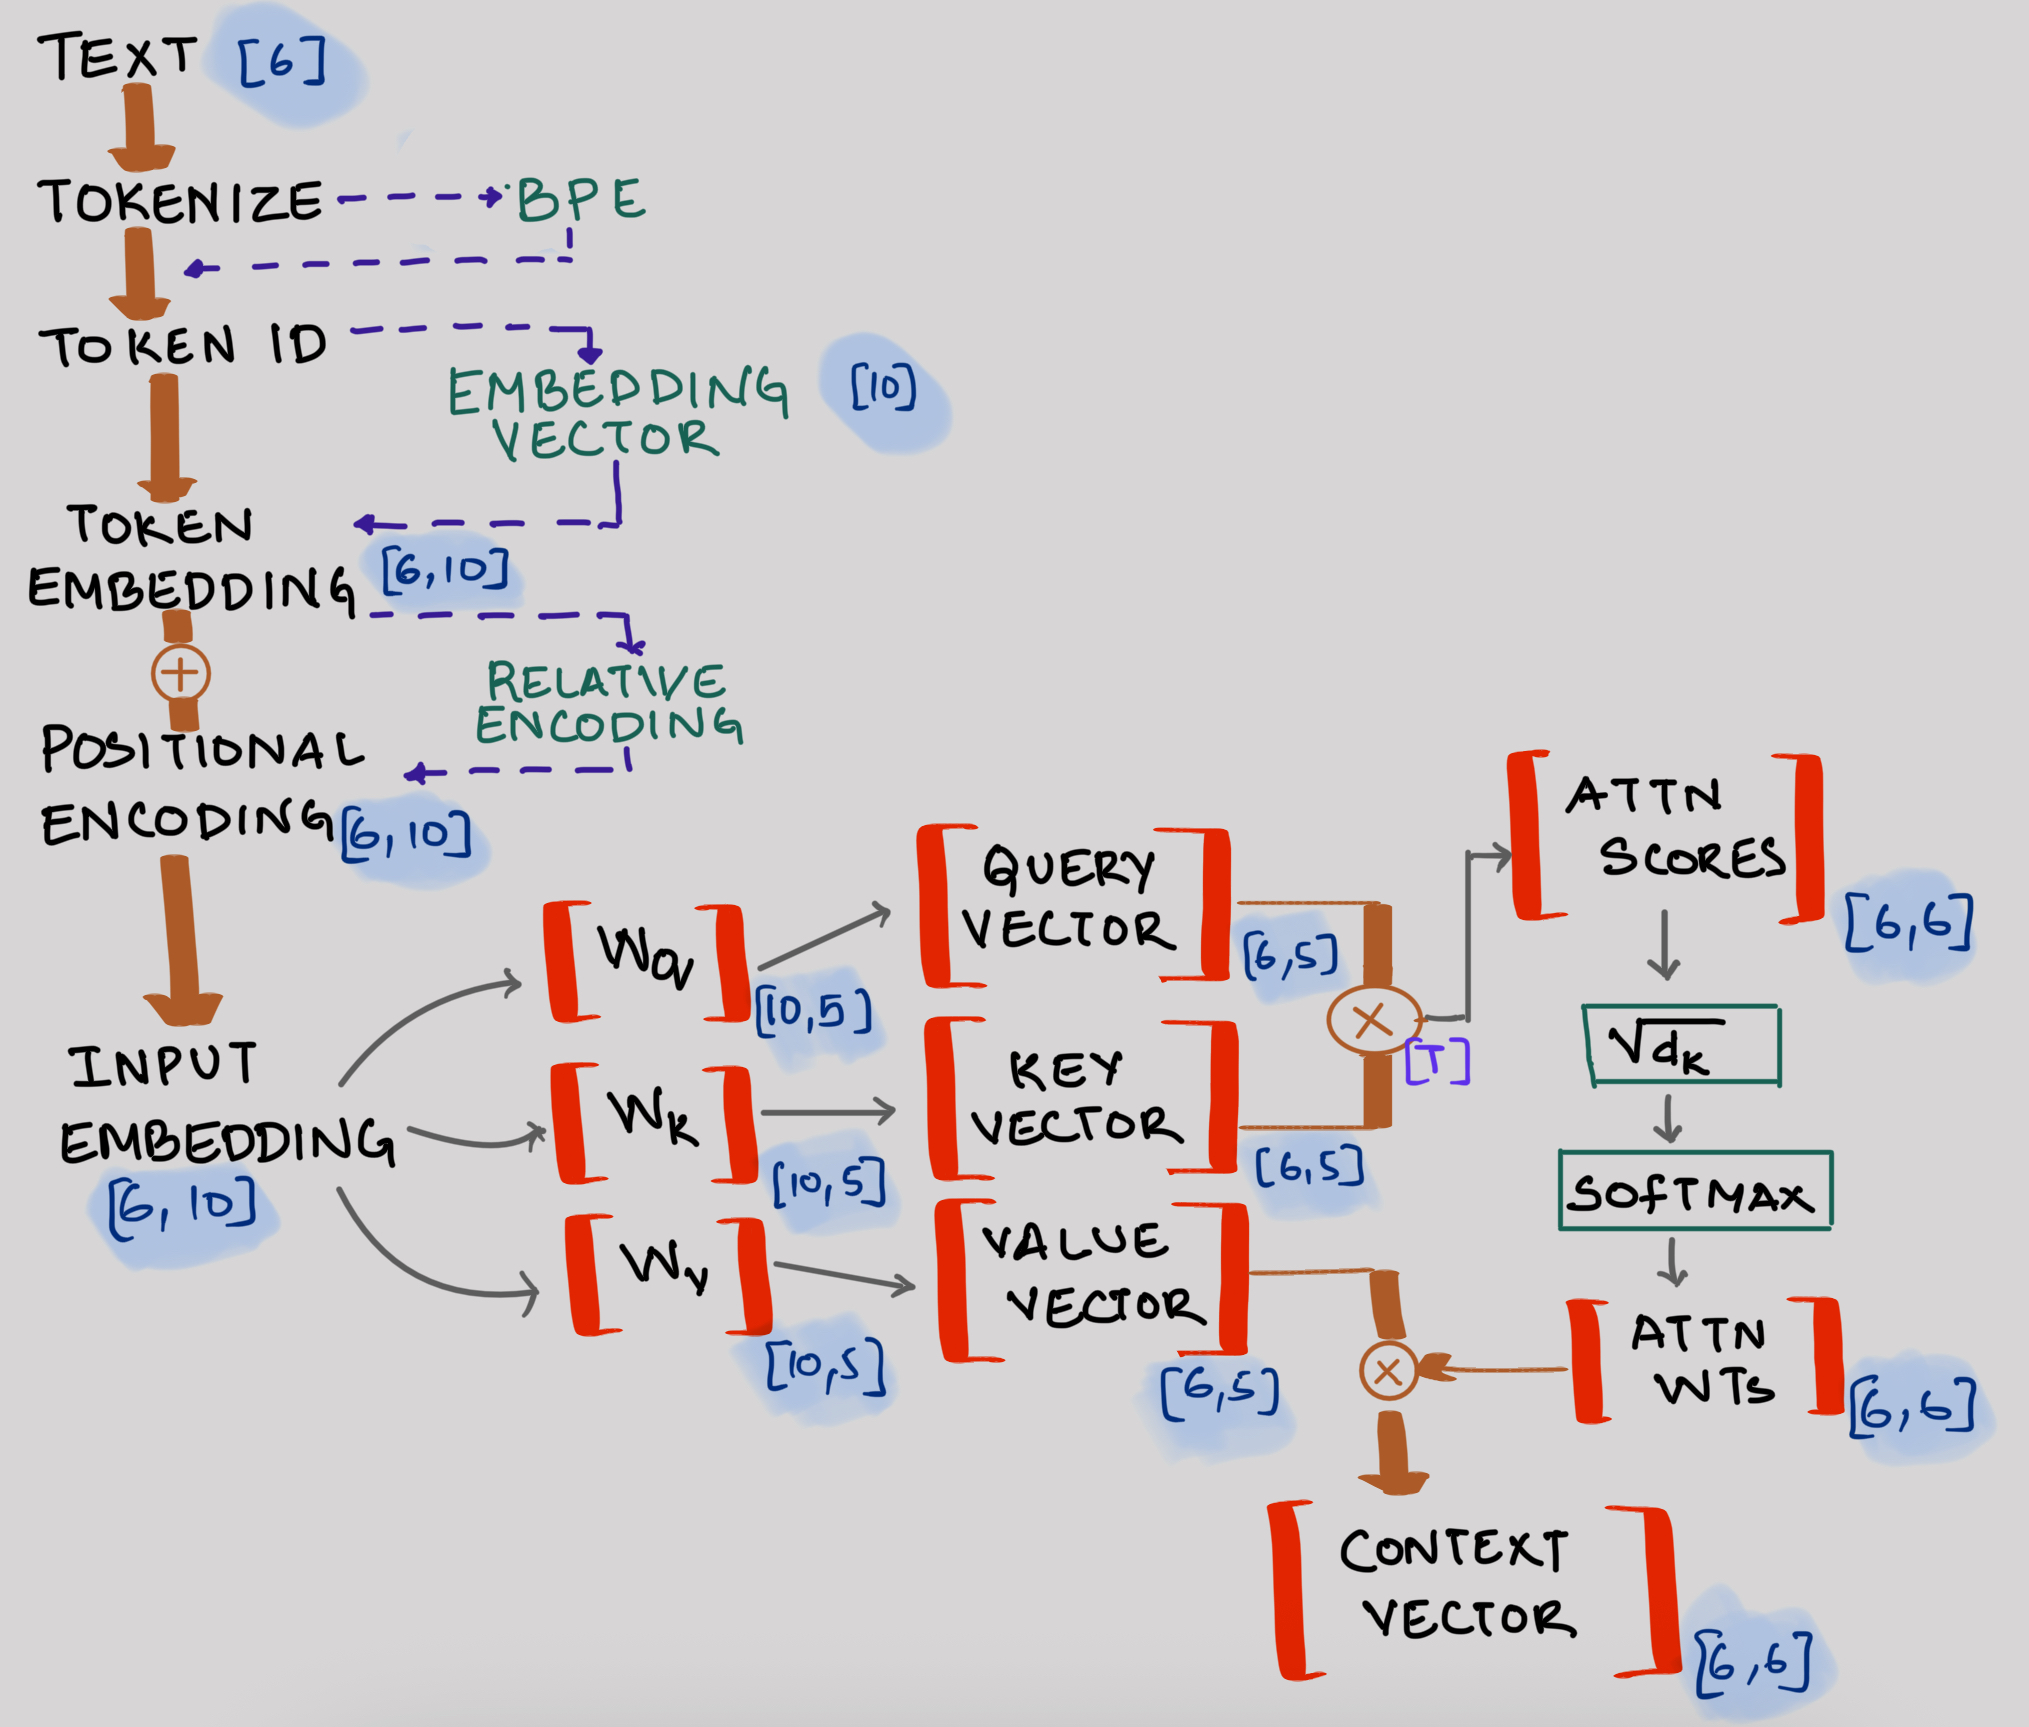 TEXT [6]
TOKENIZE BPE
TOKEN ID
EMBEDDING [10]
VECTOR
TOKEN
EMBEDDING [6,10]
+
RELATIVE
ENCODING
POSITIONAL
ENCODING [6,10]
INPUT
EMBEDDING
[6,10]
Wq
[10,5]
Wk
[10,5]
Wv
[10,5]
QUERY
VECTOR
[6,5]
KEY
VECTOR
[6,5]
VALUE
VECTOR
[6,5]
×
[T]
ATTN
SCORES
[6,6]
√dk
SOFTMAX
ATTN
WTS
[6,6]
×
CONTEXT
VECTOR
[6,6]